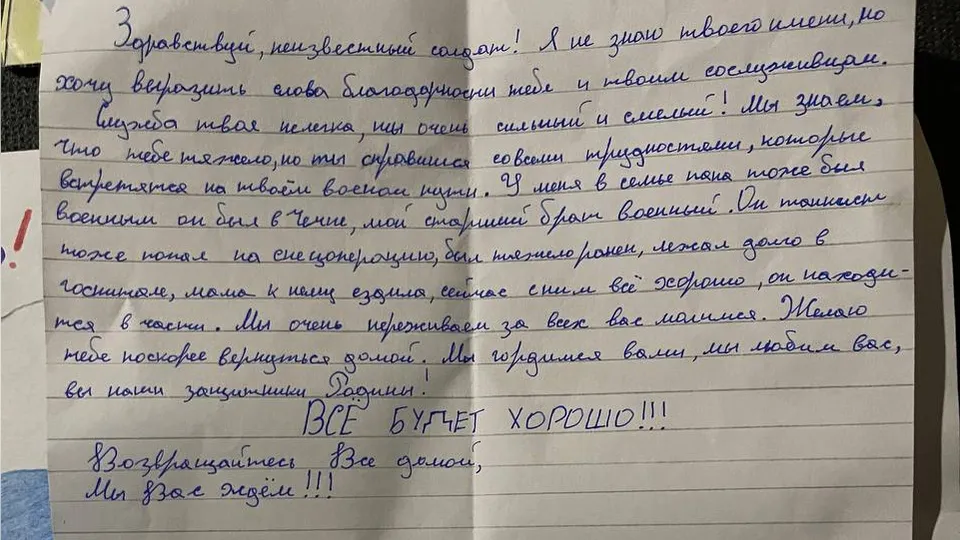 Здравствуй, неизвестный солдат! Я не знаю твоего имени, но
хочу выразить слова благодарности тебе и твоим сослуживцам.
Служба твоя нелегка, ты очень сильный и смелый! Мы знаем,
что тебе тяжело, но ты справишся совсеми трудностями, которые
встретятся на твоём военом пути. У меня в семье папа тоже был
военным он был в Чечне, мой старший брат военный. Он танкист
тоже попал на спецоперацию, был тяжело ранен, лежал долго в
госпитале, мама к нему ездила, сейчас с ним всё хорошо, он находи-
тся в части. Мы очень переживаем за всех вас молимся. Желаю
тебе поскорее вернуться домой. Мы гордимся вами, мы любим вас,
вы наши защитники Радины!
ВСЁ БУДЕТ ХОРОШО!!!
Возвращайтесь Все домой,
Мы Вас ждём!!!